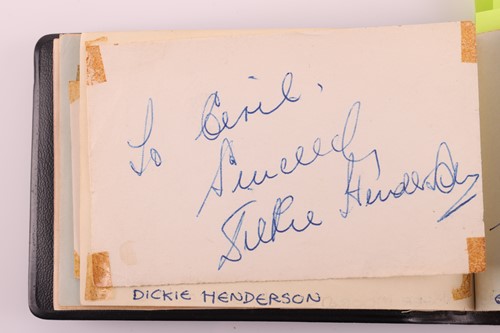 To Cecil,
Sincerely
Dickie Henderson
DICKIE HENDERSON